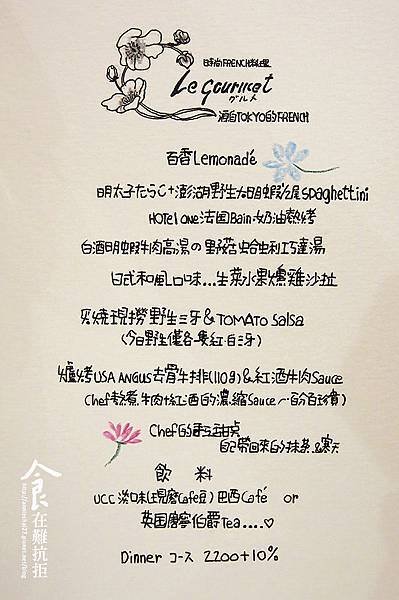 時尚FRENCH料理
Le gourmet
グルメ
源自TOKYO的FRENCH
百香Lemonadé
明太子たらこ+澎湖野生大明蝦尾spaghettini
HOTEL ONE法国Bain奶油熱烤
白酒明蝦牛肉高湯の野菇蛤蜊巧達湯
日式和風口味...生菜水果燻雞沙拉
炙燒現撈野生三牙&TOMATO salsa
(今日野生僅各一隻紅.白三牙)
爐烤USA ANGUS去骨牛排(110g)&紅酒牛肉Sauce
(Chef熬煮.牛肉+紅酒的濃縮Sauce
Chef的手工甜点
自己帶回來的抹茶.&寒天
飲 料
UCC 淡味(現磨Café豆) 巴西Café or
英国唐寧伯爵Tea....♡
Dinner コース 2200+10%
食在難抗拒